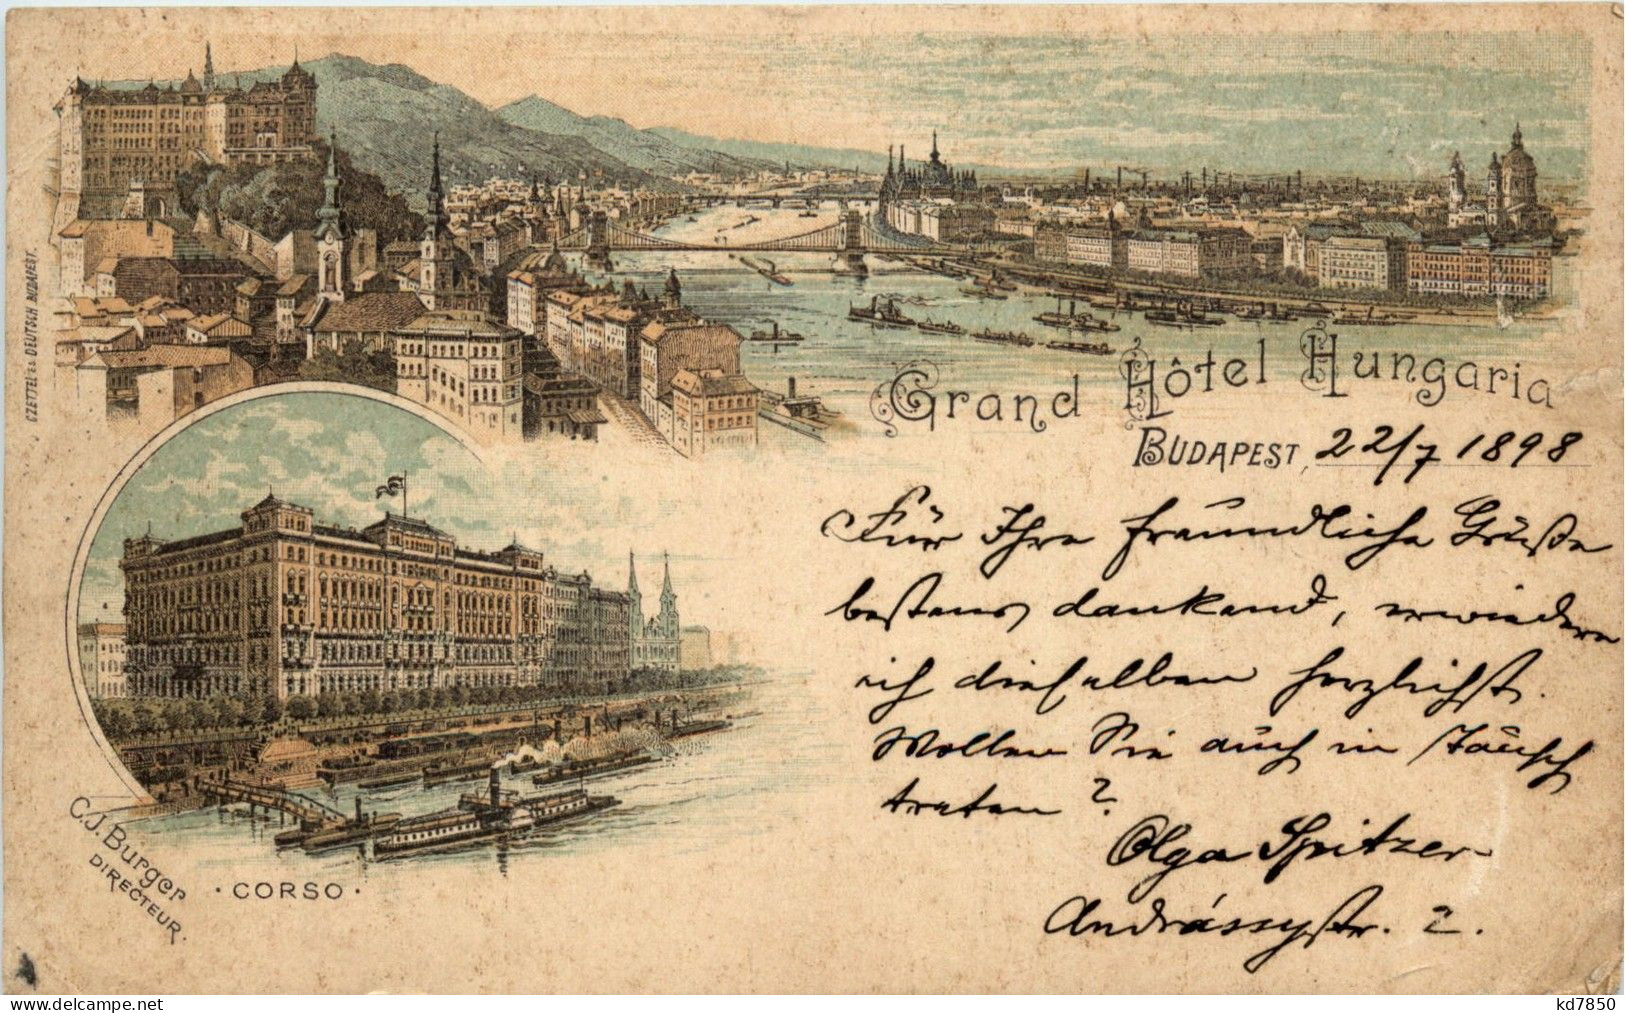 CZETTEL ÉS DEUTSCH BUDAPEST.
Grand Hôtel Hungaria
BUDAPEST, 22/7 1898
Für Ihre freundliche Grüße
bestens dankend, erwiedere
ich dieselben herzlichst.
Wollen Sie auch in Tausch
treten?
Olga Spitzer
Andrássystr. 2.
C.J. Burger
DIRECTEUR.
· CORSO ·
kd7850